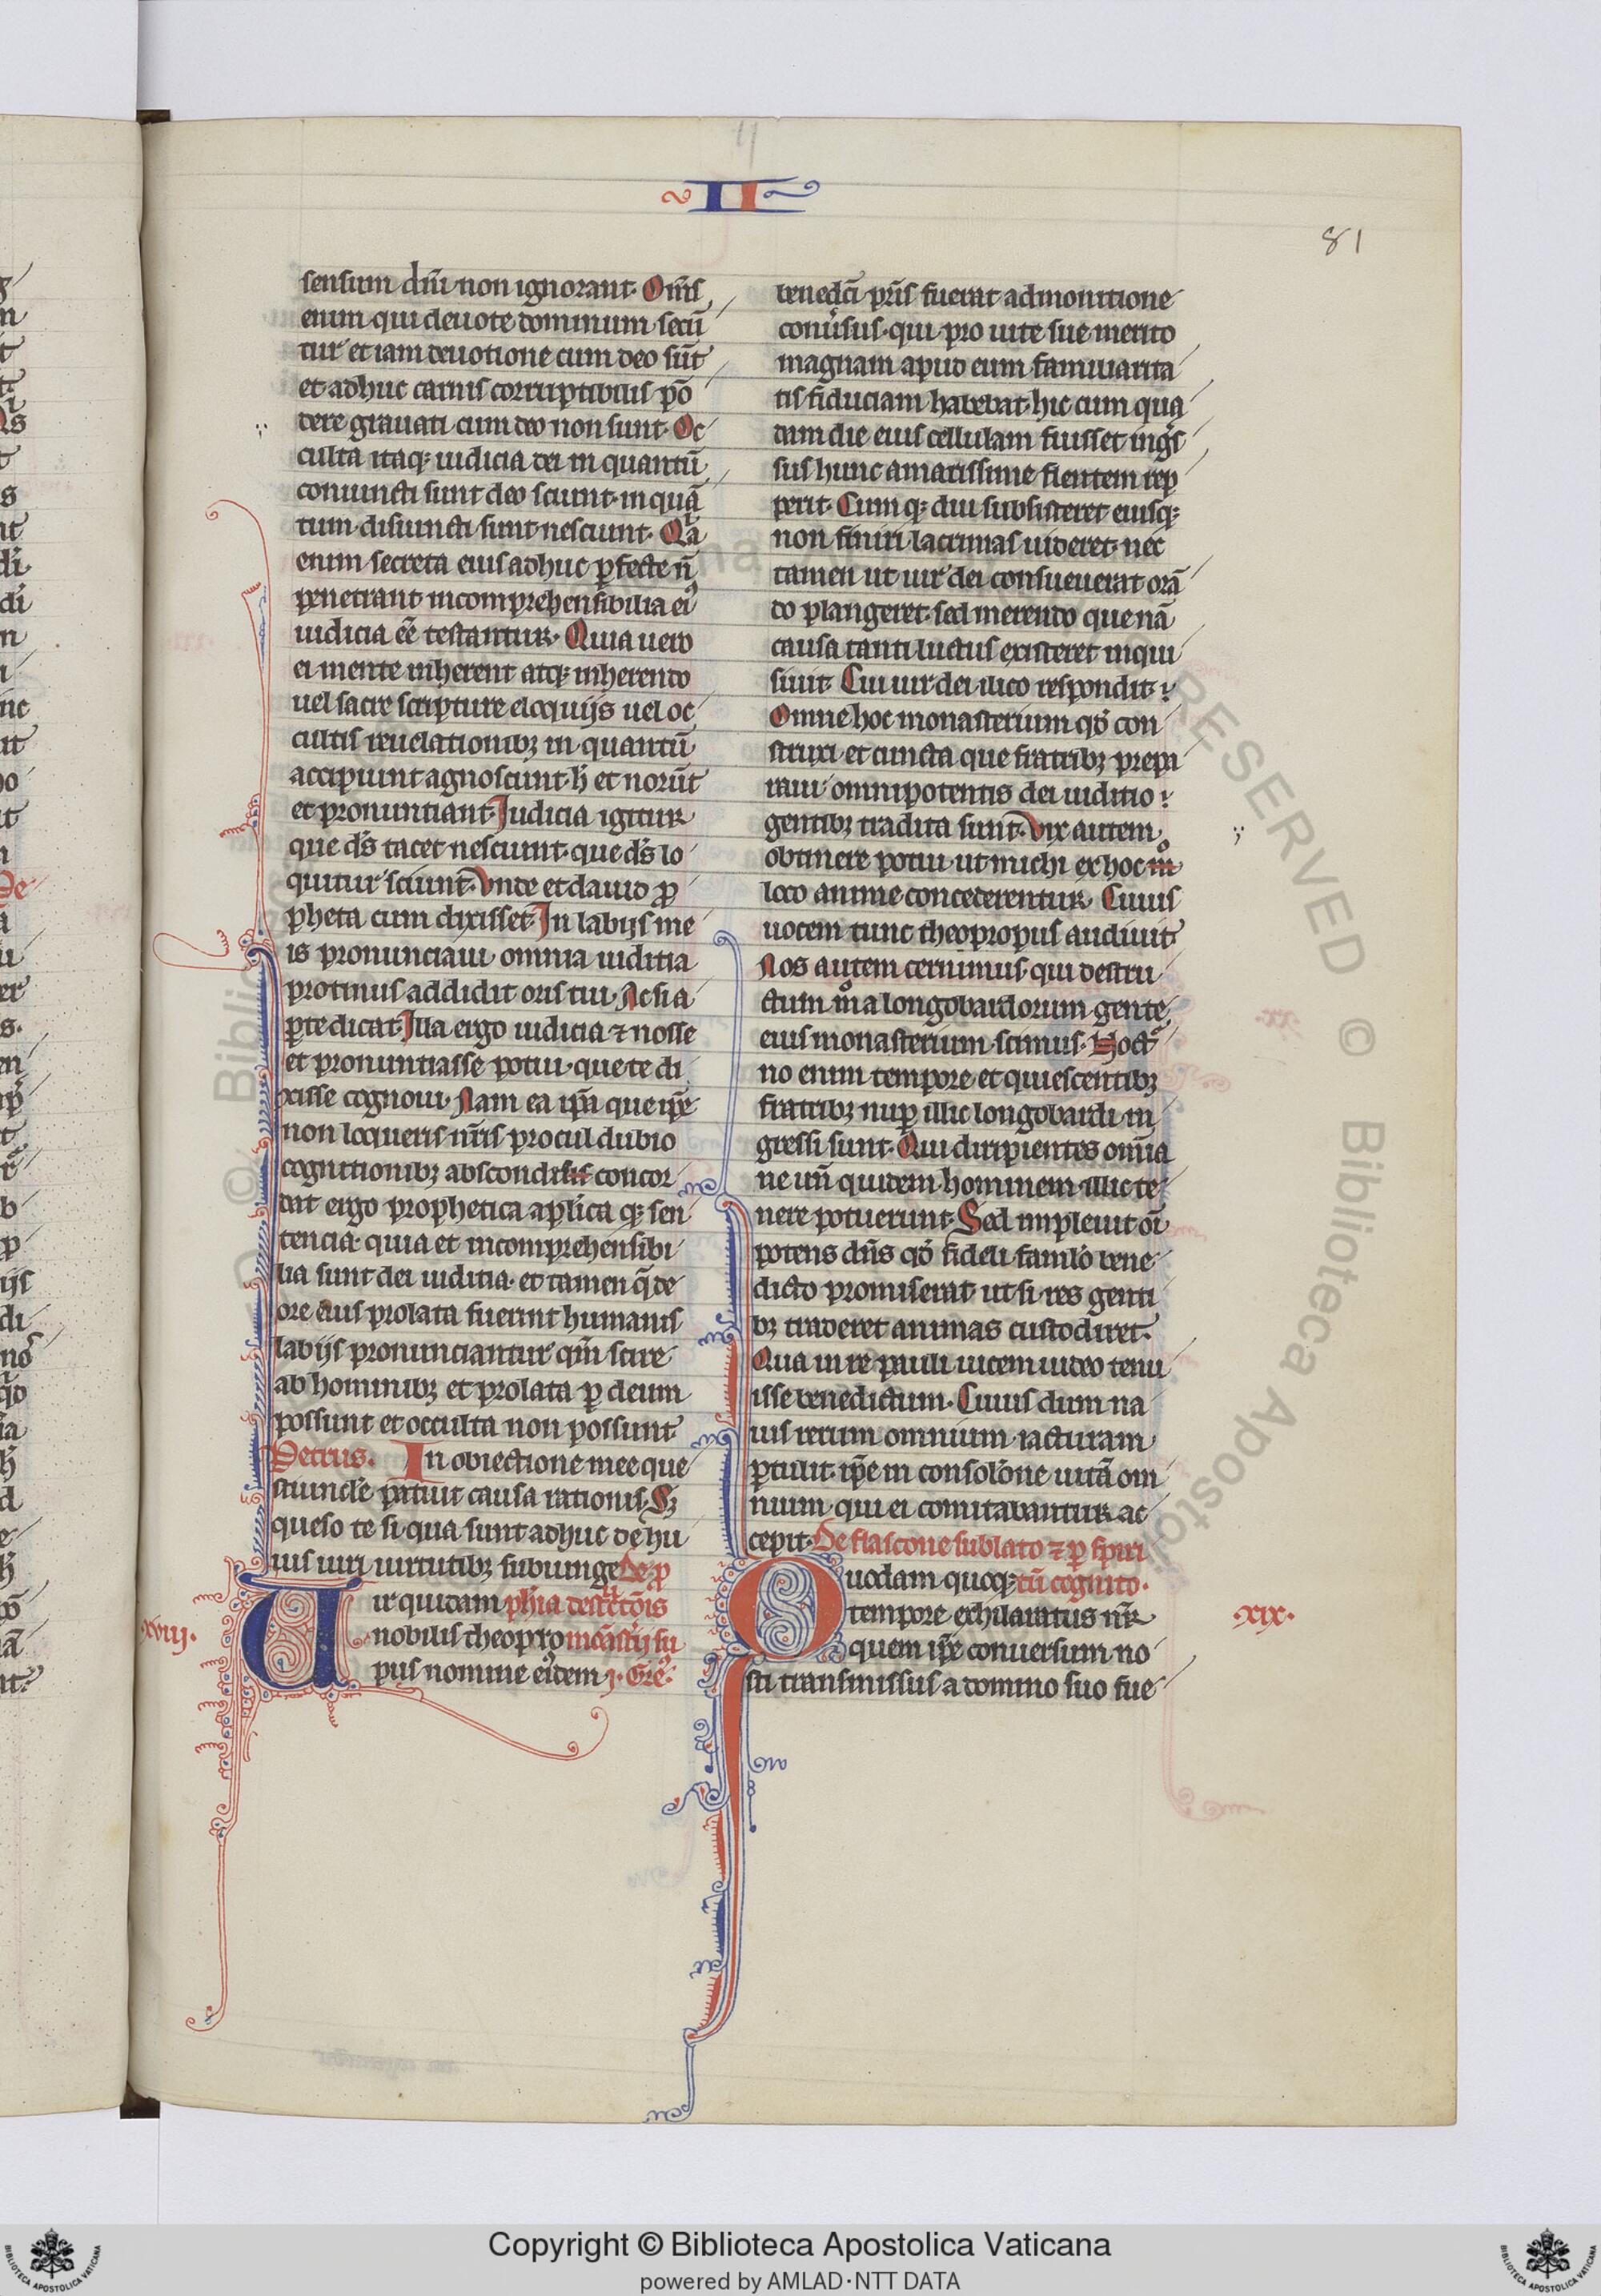 II
81
sensum dñi non ignorant. Om̃s
enim qui deuote dominum secũ
tur et iam deuotione cum deo sũt
et adhuc carnis corruptibilis põ
dere grauati cum deo non sunt. Oc
culta itaq; iudicia dei in quantũ
coniuncti sunt deo sciunt. in quã
tum disiuncti sunt nesciunt. Qͥa
enim secreta eius adhuc ꝑfecte ñ
penetrant incomprehensibilia eiꝰ
iudicia eẽ testantur. Quia uero
ei mente inherent atq; inherendo
uel sacre scripture eloquijs uel oc
cultis reuelationibꝫ in quantũ
accipiunt agnoscunt. h̃ et norũt
et pronuntiant. Judicia igitur
que ds̃ tacet nesciunt. que ds̃ lo
quitur sciunt. Vnde et dauid ꝓ
pheta cum dixisset. In labijs me
is pronunciaui omnia iuditia
protinus addidit oris tui. Ac si a
ꝑte dicat. Illa ergo iudicia ⁊ nosse
et pronuntiasse potui. que te di
xisse cognoui. Nam ea ip̃a que ip̃e
non loqueris nr̃is procul dubio
cognitionibꝫ abscondis concor
dat ergo prophetica apl̃ica q; sen
tencia. quia et incomprehensibi
lia sunt dei iuditia. et tamen q̃ de
ore eius prolata fuerint humanis
labijs pronunciantur qm̃ scire
ab hominibꝫ et prolata ꝑ deum
possunt et occulta non possunt
Petrus. In obiectione mee que
stiuncl̃e patuit causa rationis. Sꝫ
queso te si qua sunt adhuc de hu
ius uiri uirtutibꝫ subiunge. De ꝓ
Vir quidam ph̃ia destr̃ctõis
.xviij. nobilis theopro mõast̃ij su
pus nomine eiꝰdem ẏ. Gre.
benedc̃i pr̃is fuerat admonitione
conũsus. qui pro uite sue merito
magnam apud eum familiarita
tis fiduciam habebat. hic cum qua
dam die eius cellulam fuisset ingͣs
sus hunc amarissime flentem rep
perit. Cum q; diu subsisteret eiusq;
non finiri lacrimas uideret. nec
tamen ut uir dei consueuerat orã
do plangeret. sed merendo que nã
causa tanti luctus existeret inqui
siuit. Cui uir dei ilico respondit.
Omne hoc monasterium qđ con
struxi et cuncta que fratribꝫ prepa
raui omnipotentis dei iuditio.
gentibꝫ tradita sunt. Vix autem
obtinere potui. ut michi ex hoc mͦ
loco anime concederentur. Cuius
uocem tunc theopropus audiuit.
Nos autem cernimus. qui destru
ctum mͦ a longobardorum gente
eius monasterium scimus. Noctͣ
no enim tempore et quiescentibꝫ
fratribꝫ nuꝑ illic longobardi in
gressi sunt. Qui diripientes om̃ia
ne uñ quidem hominem illic te
nere potuerunt. Sed impleuit oĩ
potens dñs qđ fideli famlo bene
dicto promiserat. ut si res genti
bꝫ traderet animas custodiret.
Qua in re pauli uicem uideo tenu
isse benedictum. Cuius dum na
uis rerum omnium iacturam
ꝑtulit. ip̃e in consolõne uitã om
nium qui ei comitabantur ac
cepit. De flascone sublato ⁊ ꝑ spiri
Quodam quoq; tũ cognito.
tempore exhilaratus nr̃ .xix.
quem ip̃e conuersum no
sti transmissus a domino suo fue
© Biblioteca Apostolica Vaticana
RESERVED © Biblioteca Apostoli
Copyright © Biblioteca Apostolica Vaticana
powered by AMLAD·NTT DATA